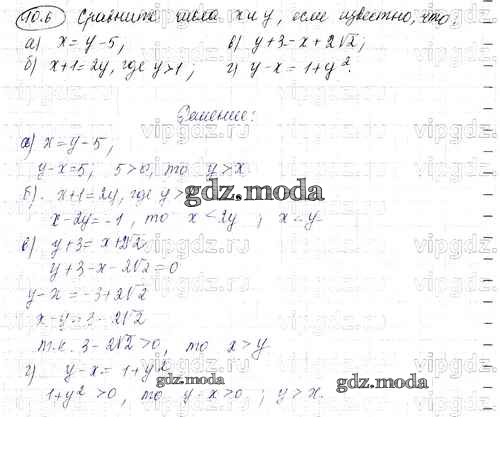 10.6 Сравните числа x и y, если известно, что:
а) x = y - 5; в) y + 3 - x + 2√2;
б) x + 1 = 2y, где y > 1; г) y - x = 1 + y².
Решение:
а) x = y - 5,
y - x = 5; 5 > 0, то y > x
б). x + 1 = 2y, где y >
x - 2y = -1, то x < 2y ; x < y.
в) y + 3 = x + 2√2
y + 3 - x - 2√2 = 0
y - x = -3 + 2√2
x - y = 3 - 2√2
т.к. 3 - 2√2 > 0, то x > y
г). y - x = 1 + y²
1 + y² > 0, то y - x > 0 ; y > x.
gdz.moda
gdz.moda
vipgdz